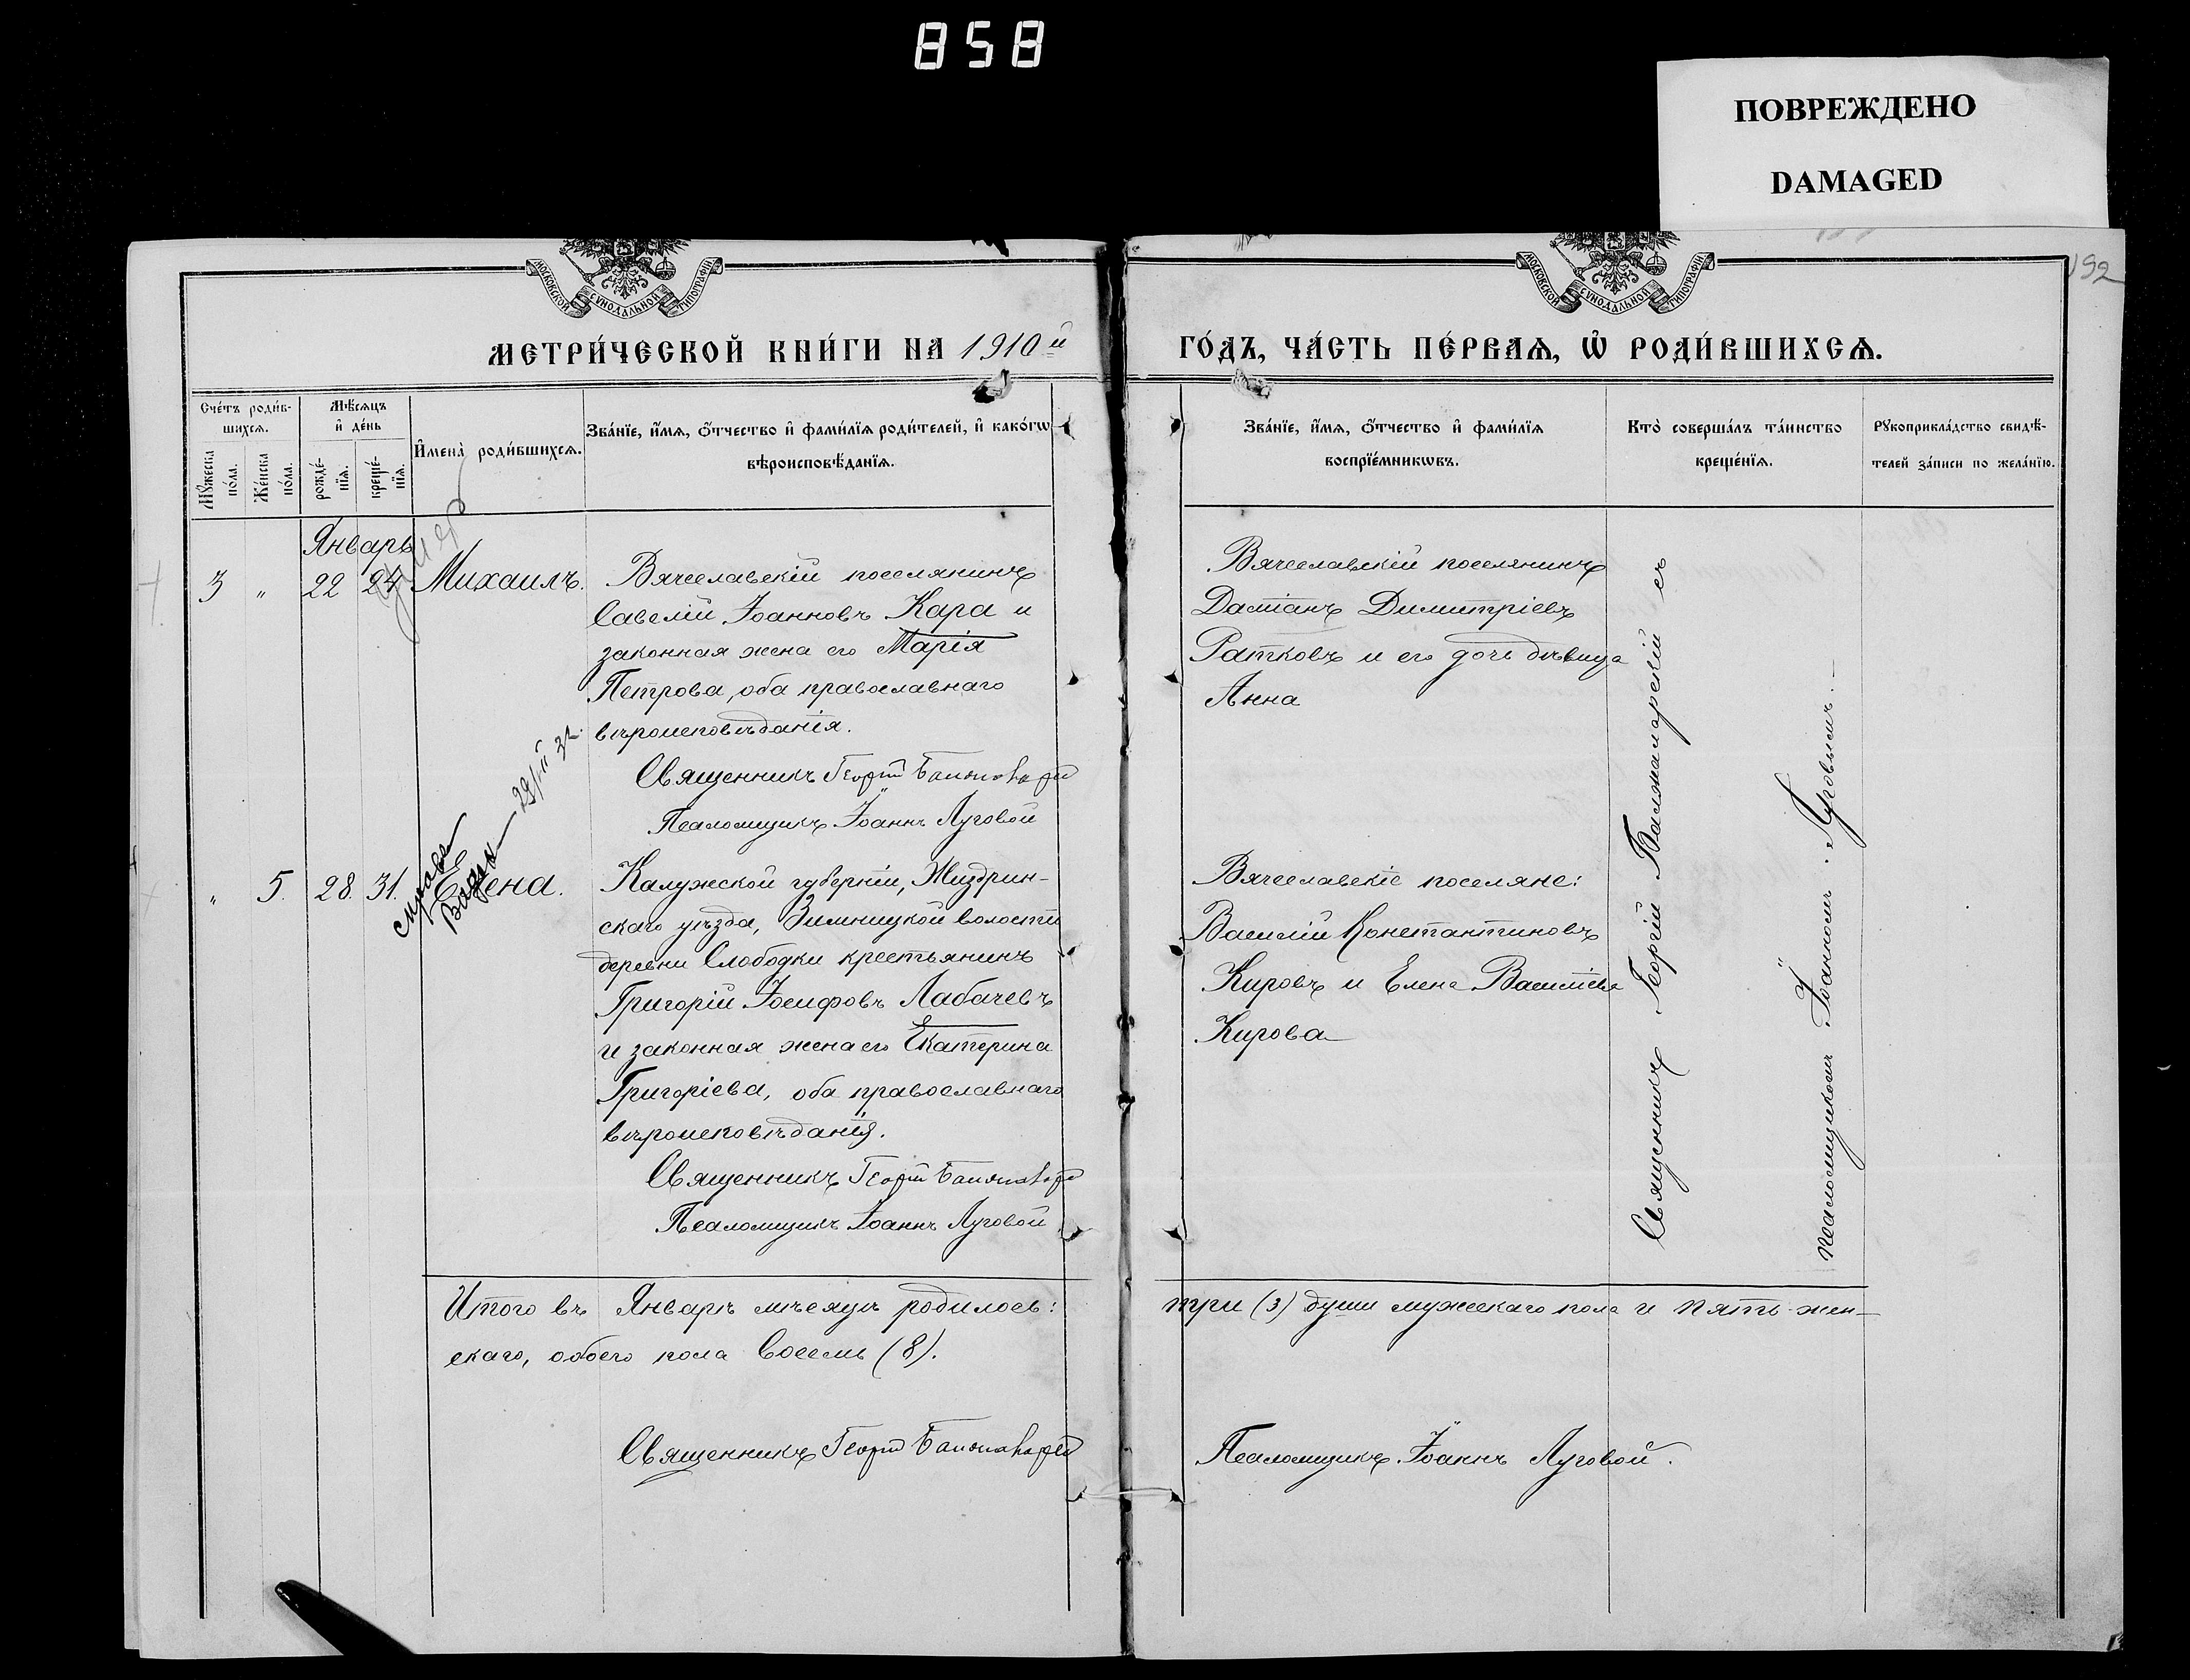 858
ПОВРЕЖДЕНО
DAMAGED
МОСКОВСКОЙ СѴНОДАЛЬНОЙ ТИПОГРАФІИ
МОСКОВСКОЙ СѴНОДАЛЬНОЙ ТИПОГРАФІИ
192
МЕТРИ́ЧЕСКОЙ КНИ́ГИ НА 1910й
ГО́ДЪ, ЧА́СТЬ ПЕ́РВАѦ, Ѡ҆ РОДИ́ВШИХСѦ.
Сче́тъ роди́в-
шихсѧ.
Мꙋ́жеска по́ла.
Же́нска по́ла.
Мѣ́сѧцъ
и҆ де́нь
рожде́-
нїѧ.
креще́-
нїѧ.
И҆мена̀ роди́вшихсѧ.
Зва́нїе, и҆́мѧ, ѻ҆́тчество и҆ фами́лїѧ роди́телей, и҆ како́гѡ
вѣроисповѣ́данїѧ.
Зва́нїе, и҆́мѧ, ѻ҆́тчество и҆ фами́лїѧ
воспрїе́мникѡвъ.
Кто̀ соверша́лъ та́инство
креще́нїѧ.
Рꙋкоприкла́дство свидѣ́-
телей за́писи по жела́нїю.
Январь
3 „ 22 24 Михаилъ.
Вячеславскій поселянинъ
Савелій Іоанновъ Кара и
законная жена его Марія
Петрова, оба православнаго
вѣроисповѣданія.
Священникъ Георгій
Псаломщикъ Іоаннъ Луговой
Вячеславскій поселянинъ
Даміанъ Димитріевъ
Ратковъ и его дочь дѣвица
Анна
„ 5. 28. 31. Елена.
справка
выдана
Калужской губерніи, Жиздрин-
скаго уѣзда, Зимницкой волости
деревни Слободки крестьянинъ
Григорій Іосифовъ Лабачевъ
и законная жена его Екатерина
Григоріева, оба православнаго
вѣроисповѣданія.
Священникъ Георгій
Псаломщикъ Іоаннъ Луговой
Вячеславскіе поселяне:
Василій Константиновъ
Кировъ и Елена Васильева
Кирова
Священникъ Георгій съ
псаломщикомъ Іоанномъ Луговымъ.
Итого въ Январѣ мѣсяцѣ родилось: три (3) души мужескаго пола и пять жен-
скаго, обоего пола восемь (8).
Священникъ Георгій
Псаломщикъ Іоаннъ Луговой.